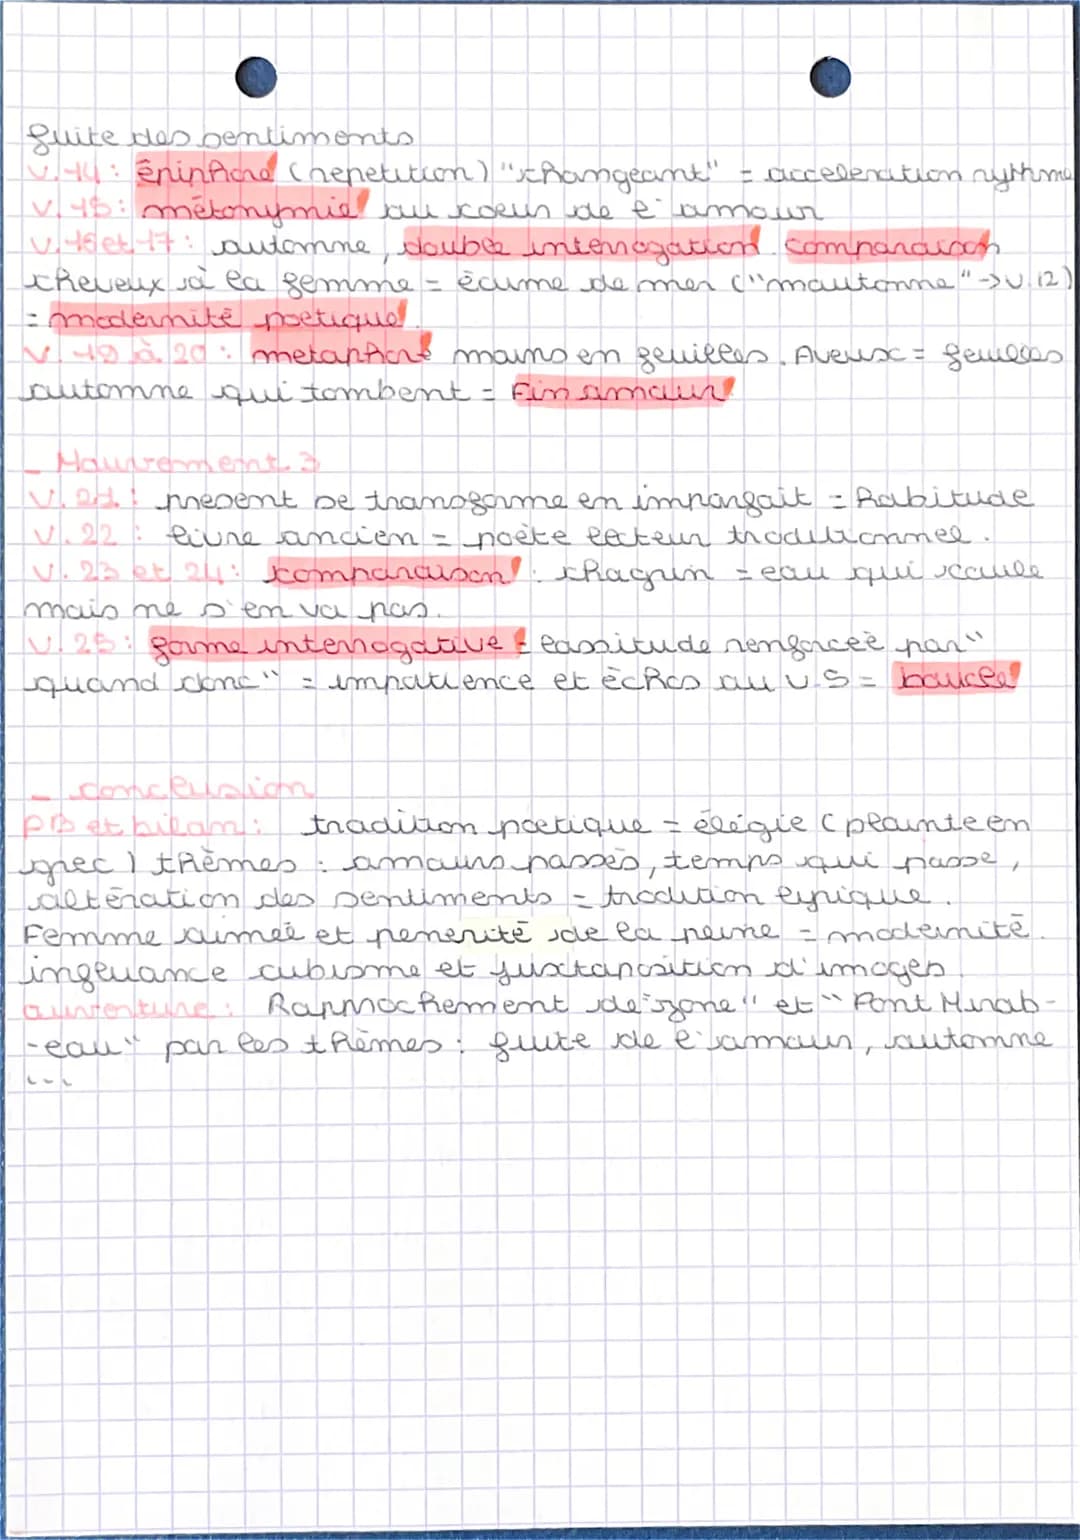 fuite des sentiments
V.14 : épiphore (repetition) "changeant" = acceleration rythme
V.15 : métonymie au coeur de l'amour
V.16 et 17 : automne, double interrogation. comparaison
cheveux à la femme = écume de mer ("mautonne" -> V.12)
= modernité poetique.
V.19 à 20 : metaphore mains en feuilles. Aveux = feuilles
automne qui tombent = Fin amour
- Mouvement 3
V.21 : present se transforme en imparfait = habitude
V.22 : livre ancien = poète lecteur traditionnel.
V.23 et 24 : comparaison : chagrin = eau qui coule
mais ne s'en va pas.
V.25 : forme interrogative = lassitude renforceè par "
quand donc" = impatience et èchos au V.5 = boucle
- conclusion
PB et bilan : tradition poetique = élégie (plainte en
grec) thèmes : amours passés, temps qui passe,
altération des sentiments = tradition lyrique.
Femme aimée et penerité de la peine = modernité.
ingluance cubisme et juxtaposition d'images.
ouverture : Rapprochement de "zone" et "Pont Mirab-
-eau" par les thèmes : fuite de l'amour, automne
...